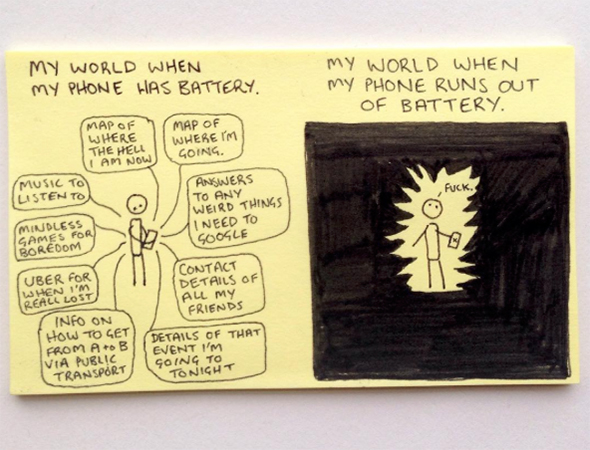 MY WORLD WHEN
MY PHONE HAS BATTERY.
MAP OF
WHERE
THE HELL
I AM NOW
MAP OF
WHERE I'M
GOING.
MUSIC TO
LISTEN TO
ANSWERS
TO ANY
WEIRD THINGS
I NEED TO
GOOGLE
MINDLESS
GAMES FOR
BOREDOM
UBER FOR
WHEN I'M
REALL LOST
CONTACT
DETAILS OF
ALL MY
FRIENDS
INFO ON
HOW TO GET
FROM A TO B
VIA PUBLIC
TRANSPORT
DETAILS OF THAT
EVENT I'M
GOING TO
TONIGHT
MY WORLD WHEN
MY PHONE RUNS OUT
OF BATTERY.
FUCK.